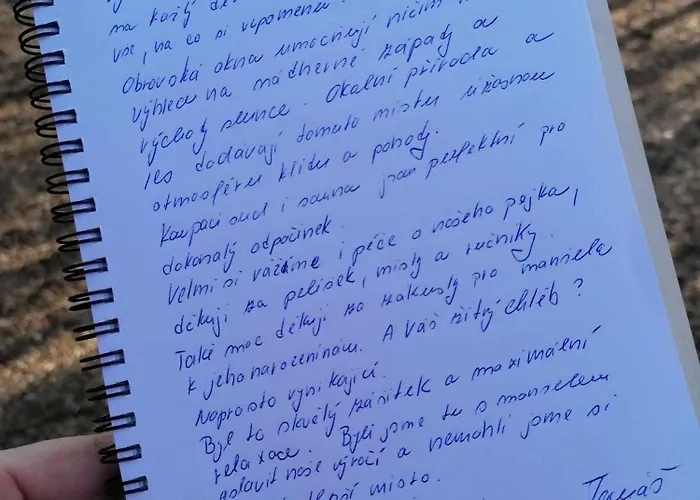 má každý de
vše, na co si vzpomena
Obrovská okna umocňují ničím
výhled na nádherné západy a
východy slunce. Okolní příroda a
les dodávají tomuto místu úžasnou
atmosféru klidu a pohody.
Koupací sud i sauna jsou perfektní pro
dokonalý odpočinek.
Velmi si vážíme i péče o našeho pejka,
děkuji za pelíšek, misky a ručníky.
Také moc děkuji za zákusky pro manžela
k jeho narozeninám. A Váš žitný chléb?
Naprosto vynikající.
Byl to skvělý zážitek a maximální
relaxace. Byli jsme tu s manželem
oslavit naše výročí a nemohli jsme si
lepší místo.
Tomáš